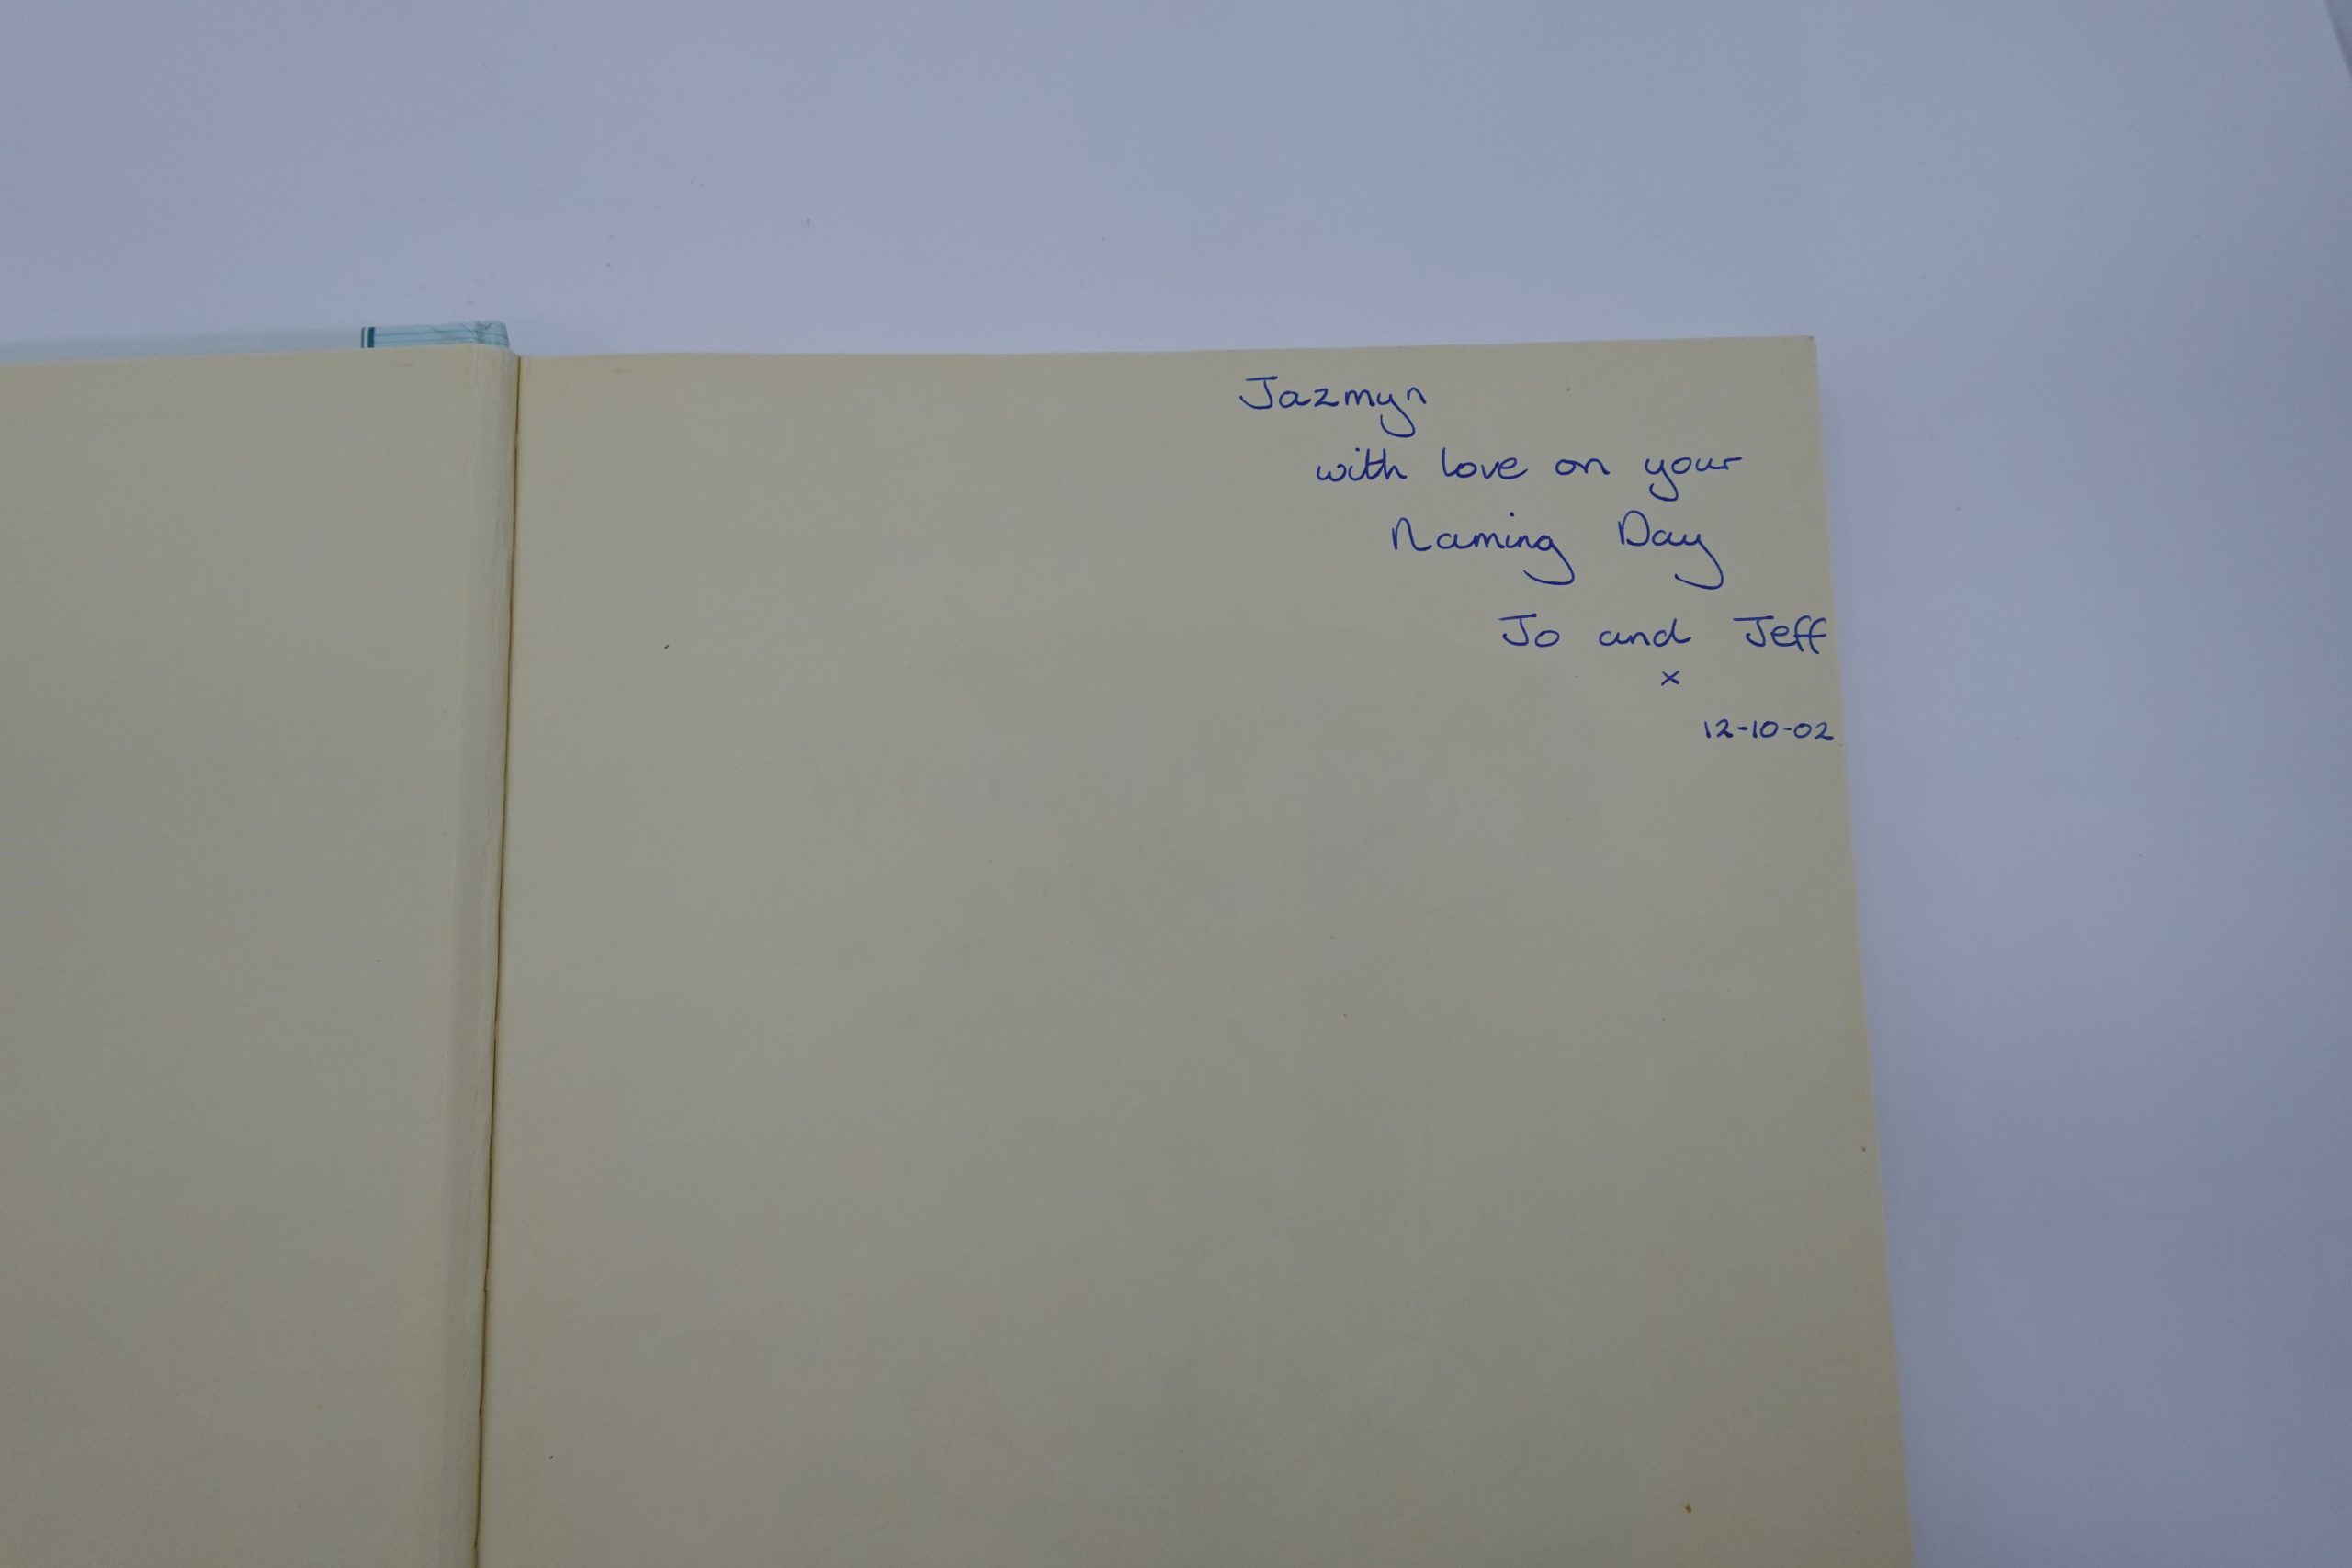 Jazmyn
with love on your
Naming Day
Jo and Jeff
x
12-10-02